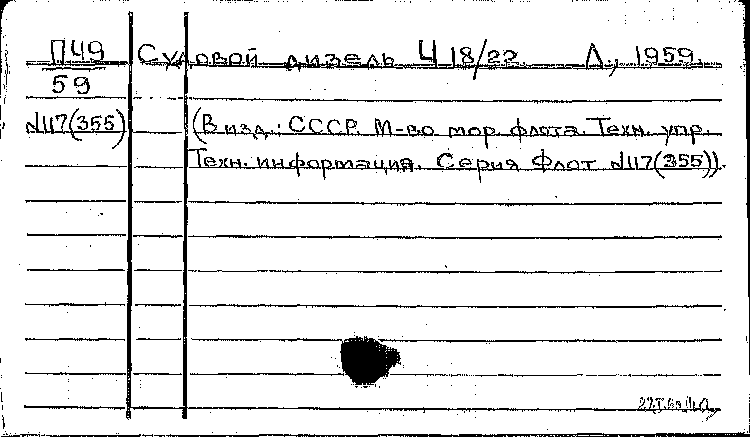 П49 Судовой дизель Ч 18/22 Л., 1959.
59
№117(355) (В изд.: СССР. М-во мор. флота. Техн. упр.
Техн. информация. Серия Флот №117(355)).